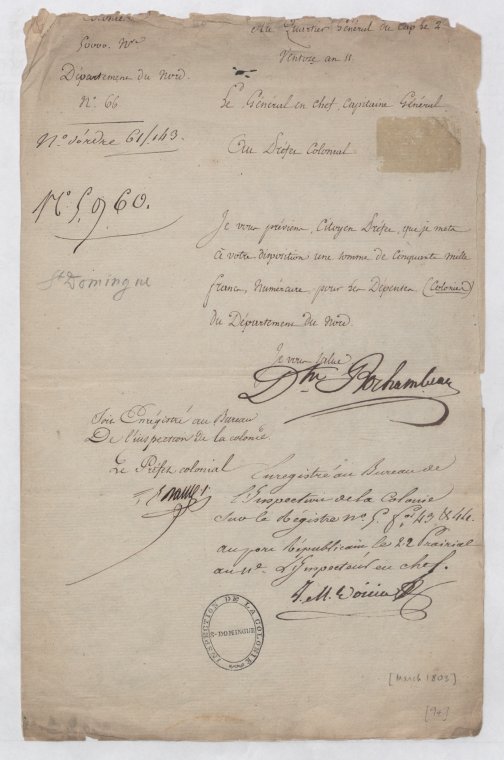 50000. Nre
Département du Nord.
N.º 66
N.º d'ordre 61/143.
N.º 5,960.
St Domingue
Au Quartier Général du Cap le 2
Ventose an 11.
Le Général en chef, Capitaine Général
Au Préfet Colonial
Je vous préviens, Citoyen Préfet, que je mets
à votre disposition une somme de Cinquante mille
francs, Numéraire pour les Dépenses (Colonie)
du Département du Nord.
Je vous salue
Dtn Rochambeau
Soit Enrégistré au Bureau
De l'inspection de la colonie.
Le Préfet colonial
Enregistré au Bureau de
l'Inspection de la Colonie
sur le Régistre nº 5 fº 43 & 44.
au port Républicain le 22 Prairial
an 11e. L'Inspecteur en chef.
INSPECTION DE LA COLONIE
S-DOMINGUE
[March 1803]
[94]